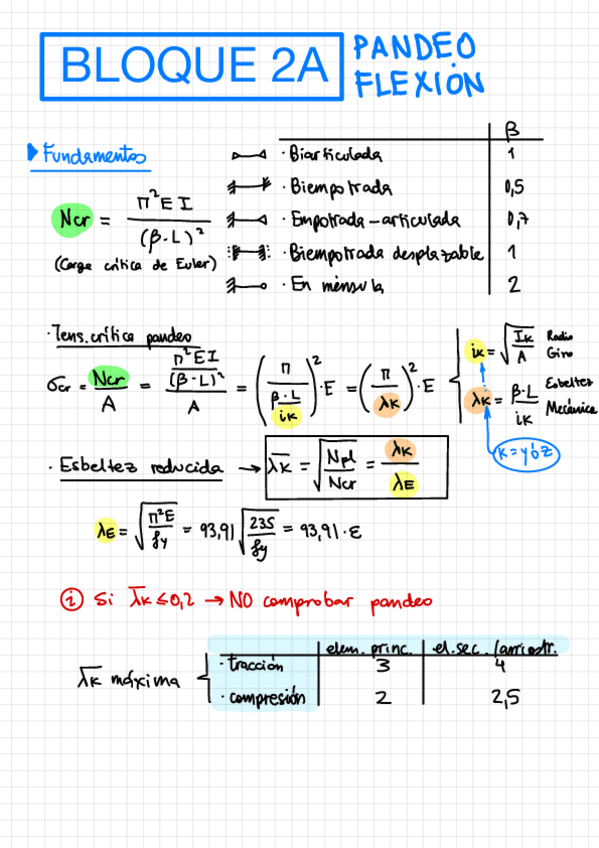 BLOQUE 2A
PANDEO
FLEXIÓN
Fundamentos
Ncr = π²EI / (β·L)²
(Carga crítica de Euler)
β
· Biarticulada 1
· Biempotrada 0,5
· Empotrada-articulada 0,7
· Biempotrada desplazable 1
· En ménsula 2
· Tens. crítica pandeo
σcr = Ncr / A = (π²EI / (β·L)²) / A = (π / (β·L / iK))² · E = (π / λK)² · E
iK = √(IK / A) Radio Giro
λK = β·L / iK Esbeltez Mecánica
K = y ó z
· Esbeltez reducida → λ̅K = √(Npl / Ncr) = λK / λE
λE = √(π²E / fy) = 93,91 √(235 / fy) = 93,91 · ε
i Si λ̅K ≤ 0,2 → NO comprobar pandeo
elem. princ. el. sec. (arriostr.
λ̅K máxima
· tracción 3 4
· compresión 2 2,5